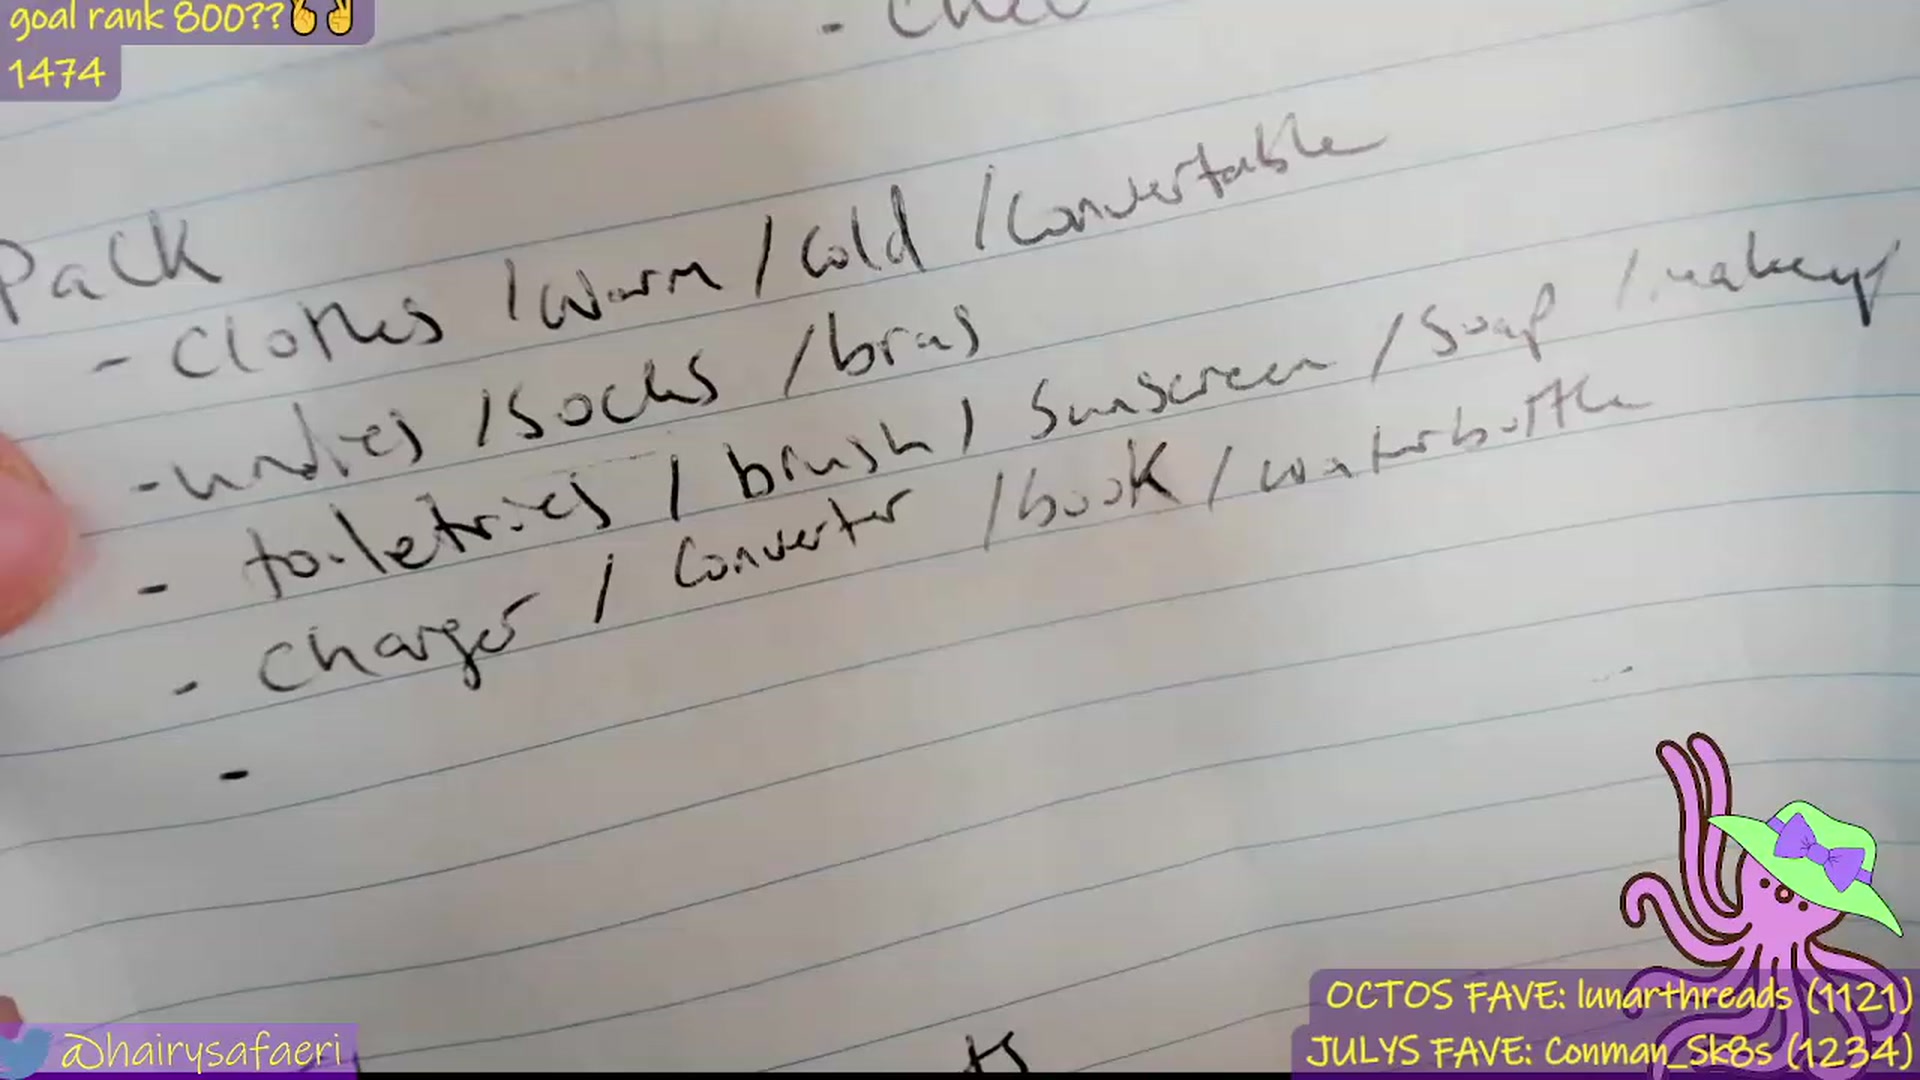 goal rank 800??🤞✌
1474
Pack
- Clothes / warm / Cold / Convertable
- undies / Socks / bras
- toiletries / brush / Sunscreen / Soap / makeup
- Charger / Converter / book / waterbottle
-
@hairysafaeri
OCTOS FAVE: lunarthreads (1121)
JULYS FAVE: Conman_Sk8s (1234)